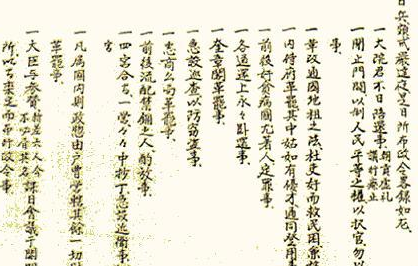 日所布政令畧錄如左
一 大院君不日陪還事 朝貢虛礼 議行廢止
一 閉止門閥以制人民平等之權以人擇官勿以
事
一 革改通國地租之法杜吏奸而救民困兼裕
一 內侍府革罷其中如有優才通同登用事
一 前後奸貪病國尤著人定罪事
一 各道還上永々臥還事
一 奎章閣革罷事
一 急設巡查以防窃盜事
一 惠商公局革罷事
一 前後流配禁錮之人酌放事
一 四營合爲一營々中抄丁急設近衛事
一 凡屬國內財政總由戶曹管轄其餘一切財
革罷事
一 大臣與參贊 新差六人今 不必書其名 課日會議于閤門
所以爲稟定而布行政令事